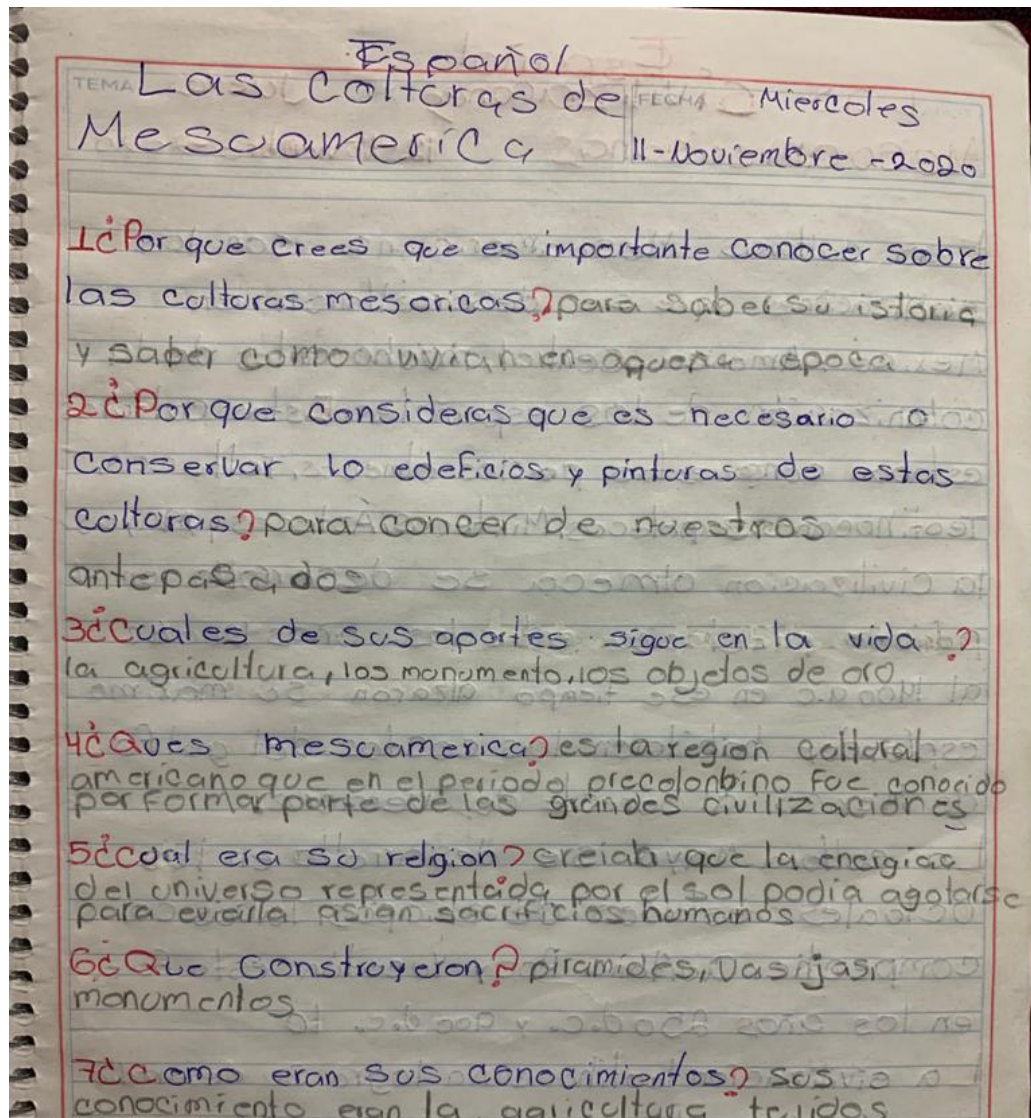 Español
TEMA Las Colturas de FECHA Miercoles
Mesoamerica 11-Noviembre-2020
1¿Por que crees que es importante conocer sobre
las colturas mesoricas? para saber su istoria
y saber como vivian en aquella epoca
2¿Por que consideras que es necesario
conservar lo edeficios y pinturas de estas
colturas? para concer de nuestros
antepasados
3¿Cuales de sus aportes sigue en la vida?
la agricoltura, los monumento, los objetos de oro
4¿Ques mesoamerica? es la region coltural
americano que en el periodo precolonbino fue conocido
por formar parte de las grandes civilizaciones
5¿cual era su religion? creian que la energia
del universo representada por el sol podia agotarse
para evitarla asian sacrificios humanos
6¿Que construyeron? piramides, vasijas,
monumentos
7¿Como eran sus conocimientos? sus
conocimiento eran la agricultura tejidos